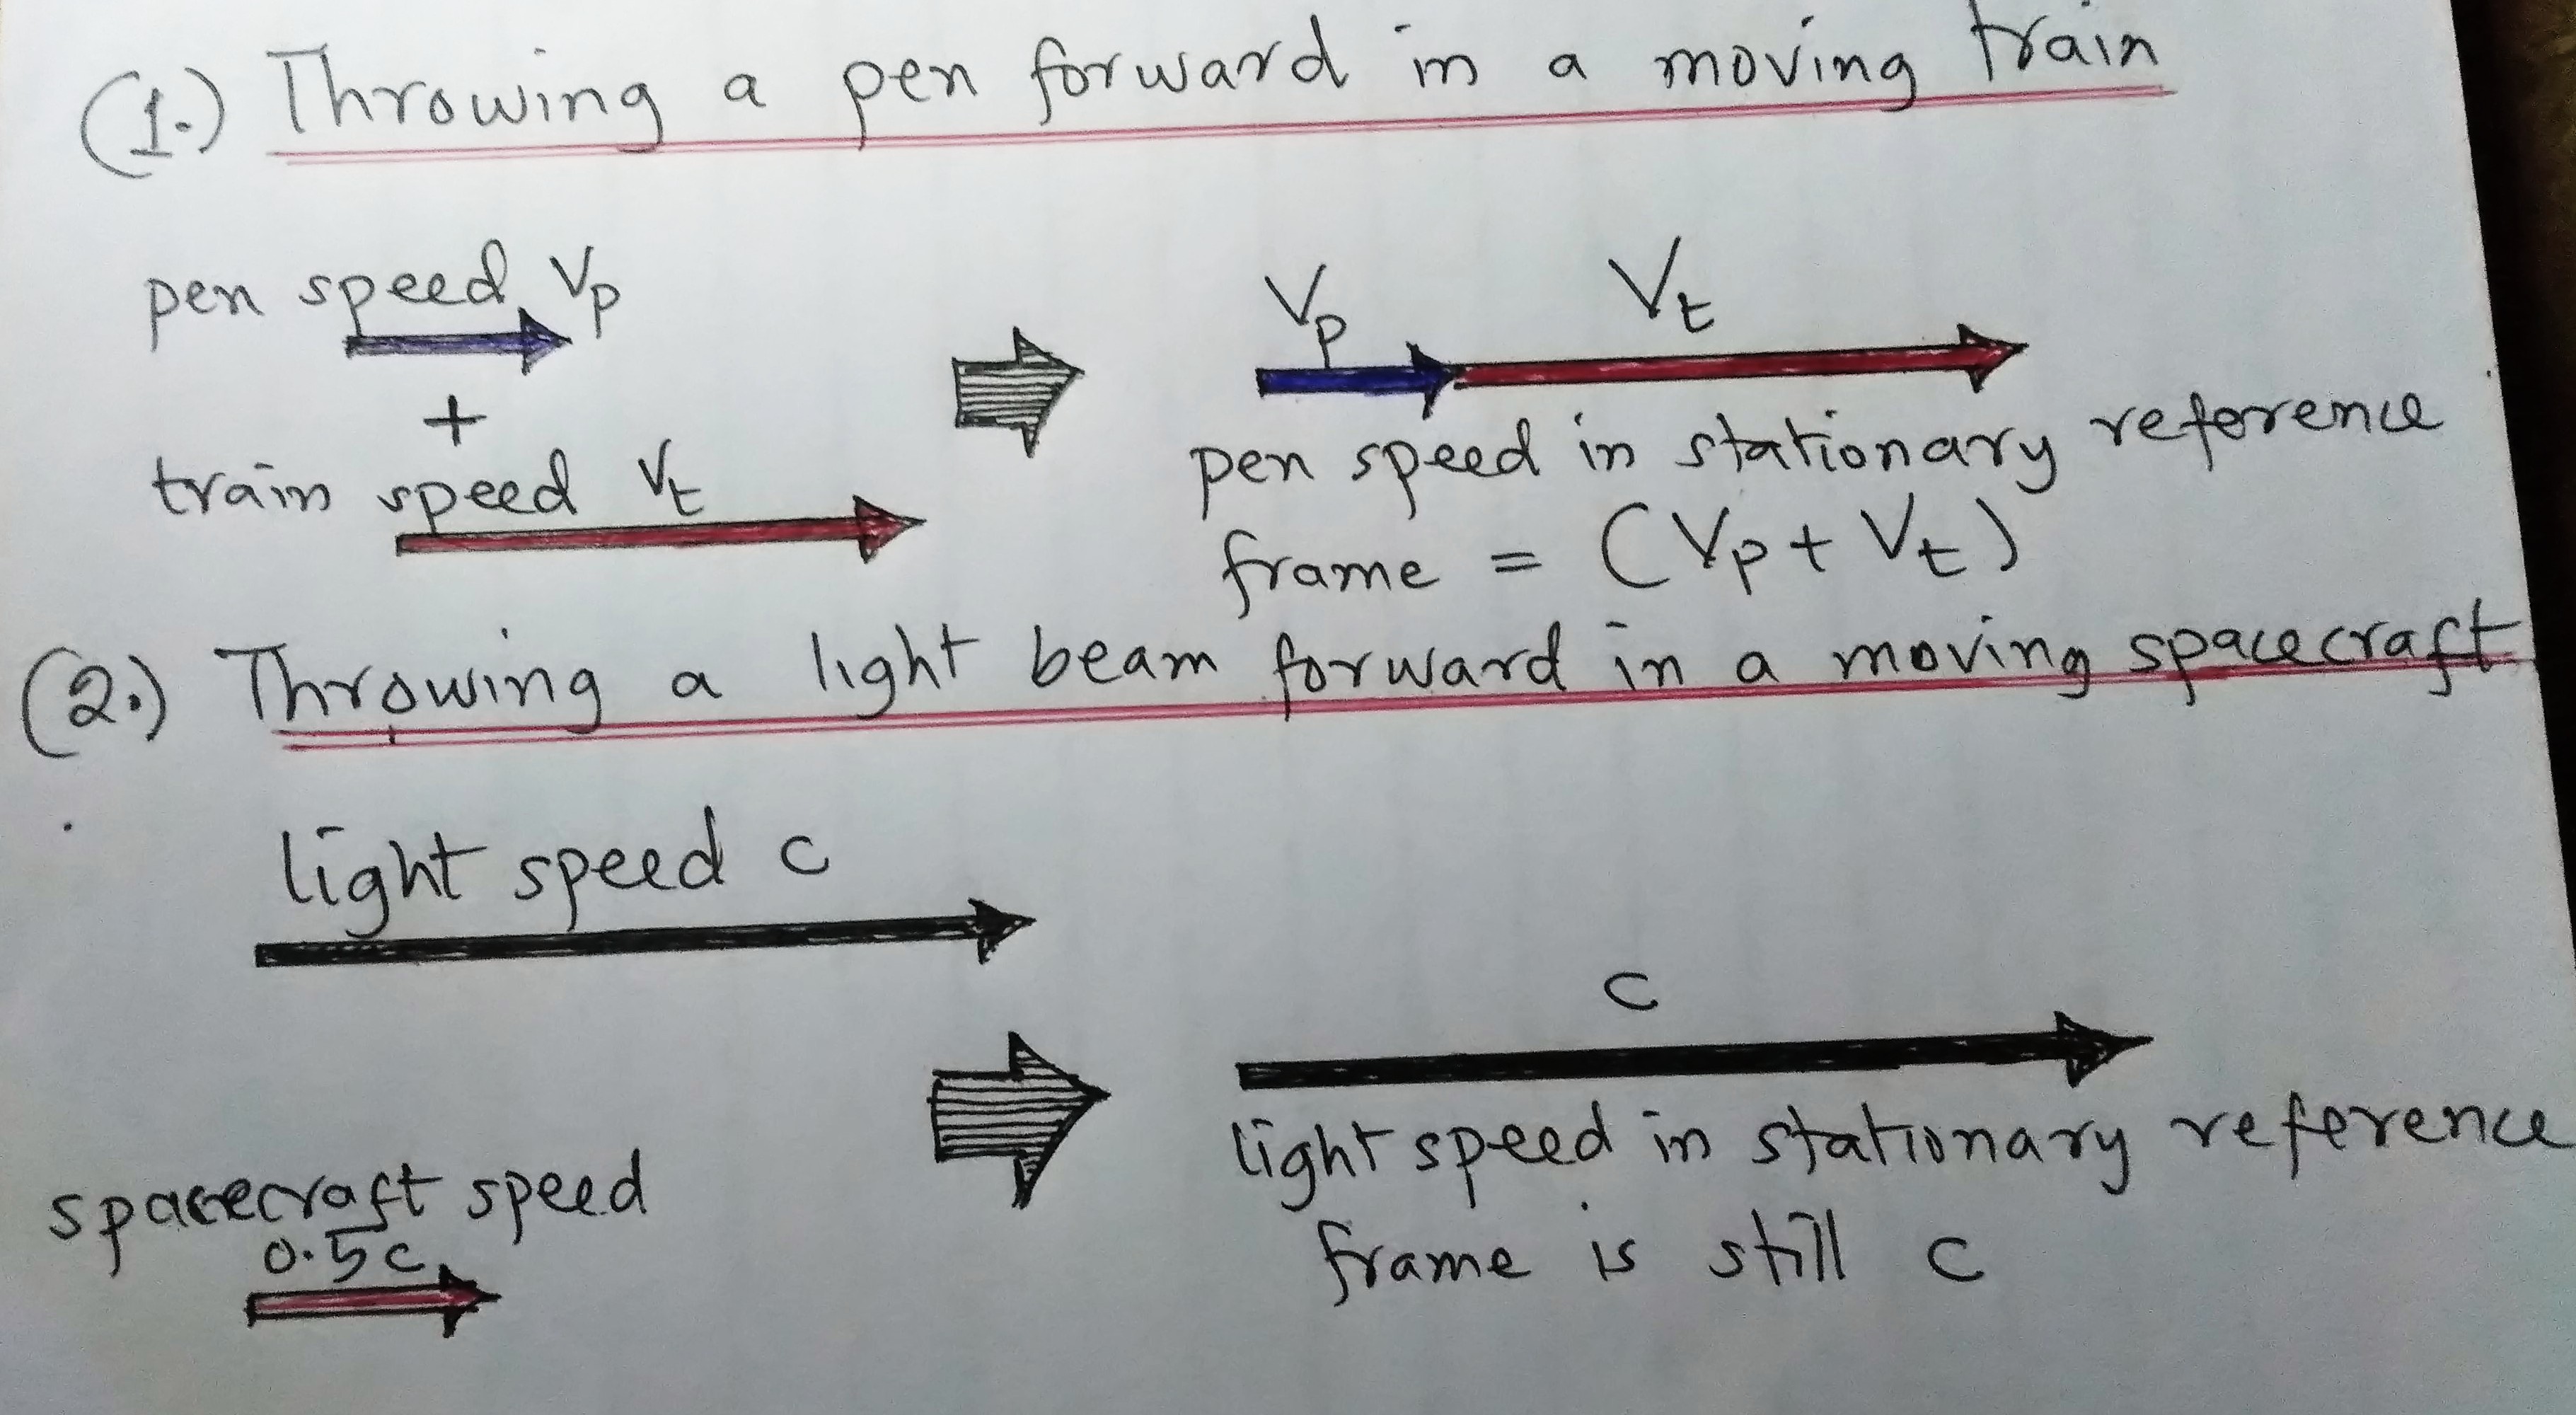 (1.) Throwing a pen forward in a moving train
pen speed Vp
+
train speed Vt
Vp Vt
pen speed in stationary reference
frame = (Vp + Vt)
(2.) Throwing a light beam forward in a moving spacecraft
light speed c
spacecraft speed
0.5c
c
light speed in stationary reference
frame is still c